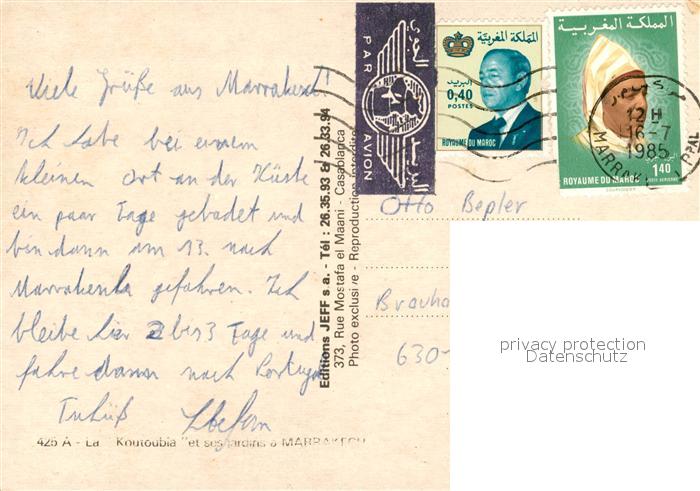 Viele Grüße aus Marrakesch!
Ich habe bei einem
kleinen Ort an der Küste
ein paar Tage gebadet und
bin dann am 13. nach
Marrakesch gefahren. Ich
bleibe hier 2 bis 3 Tage und
fahre dann nach Portugal
Tschüß Stefan
425 A - La Koutoubia et ses jardins à MARRAKECH
Editions JEFF s.a. - Tél : 26.35.93 & 26.33.94
373, Rue Mostafa el Maani - Casablanca
Photo exclusive - Reproduction interdite
البريد الجوي
PAR AVION
المملكة المغربية
البريد
0,40
POSTES
ROYAUME DU MAROC
المملكة المغربية
1,40
ROYAUME DU MAROC
POSTE AERIENNE
12H
16-7
1985
MARRAKECH
Otto Bepler
Brauha
630
privacy protection
Datenschutz